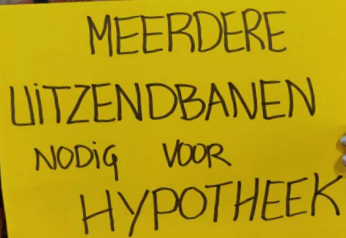 MEERDERE
UITZENDBANEN
NODIG VOOR
HYPOTHEEK